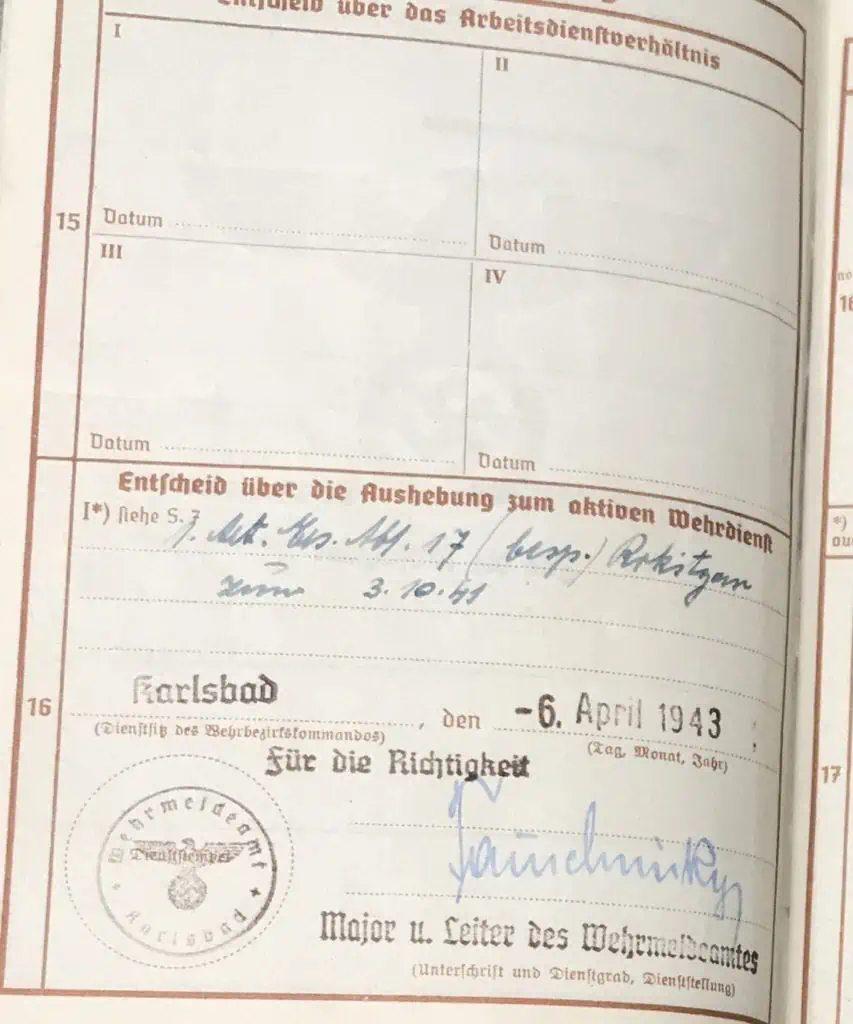 Entscheid über das Arbeitsdienstverhältnis
I
II
15
Datum
Datum
III
IV
Datum
Datum
Entscheid über die Aushebung zum aktiven Wehrdienst
I*) siehe S. 7
1. Art. Ers. Abt. 17 (besp.) Rokitzan
zum 3.10.41
16
Karlsbad, den -6. April 1943
(Dienstsitz des Wehrbezirkskommandos)
(Tag, Monat, Jahr)
Für die Richtigkeit
Wehrmeldeamt
Dienststempel
Karlsbad
Major u. Leiter des Wehrmeldeamtes
(Unterschrift und Dienstgrad, Dienststellung)
17